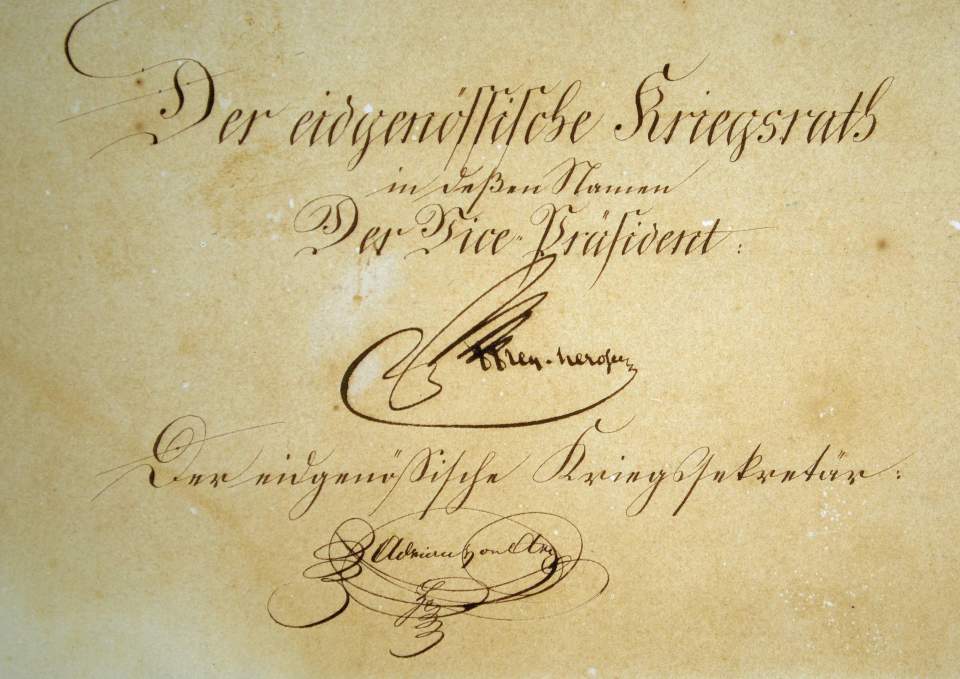 Der eidgenössische Kriegsrath
in deßen Namen
Der Vice-Präsident:
Der eidgenößische Kriegssekretär:
Adrian von Arx